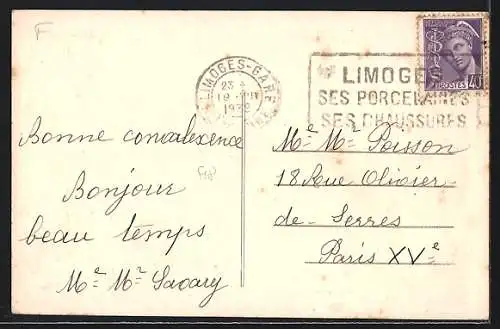 F
LIMOGES-GARE
1939
LIMOGES
SES PORCELAINES
SES CHAUSSURES
POSTES 40
Bonne convalexence
Bonjour
beau temps
Mᵉ Mʳ Savary
Mᵉ Mʳ Poisson
18 Rue Olivier-
de-Serres
Paris XVᵉ